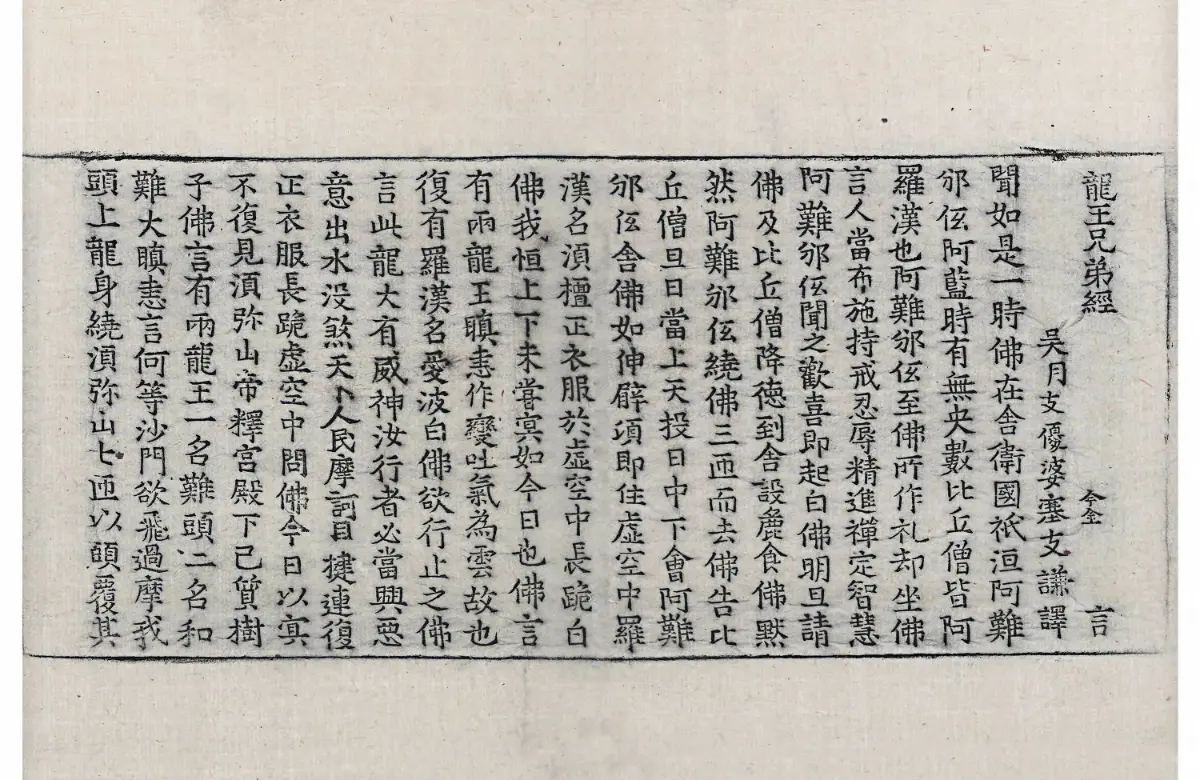 龍王兄弟經 㑒 言
吳月支優婆塞支謙譯
聞如是一時佛在舍衛國祇洹阿難
邠仾阿藍時有無央數比丘僧皆阿
羅漢也阿難邠仾至佛所作礼却坐佛
言人當布施持戒忍辱精進禪定智慧
阿難邠仾聞之歡喜即起白佛明旦請
佛及比丘僧降德到舍設麁食佛默
然阿難邠仾繞佛三匝而去佛告比
丘僧旦日當上天投日中下會阿難
邠仾舍佛如伸臂項即住虛空中羅
漢名湏檀正衣服於虛空中長跪白
佛我恒上下未甞冥如今日也佛言
有兩龍王瞋恚作變吐氣為雲故也
復有羅漢名愛波白佛欲行止之佛
言此龍大有威神汝行者必當興惡
意出水没煞天下人民摩訶目揵連復
正衣服長跪虛空中問佛今日以冥
不復見湏弥山帝釋宮殿下已質樹
子佛言有兩龍王一名難頭二名和
難大瞋恚言何等沙門欲飛過摩我
頭上龍身繞湏弥山七匝以頭覆其